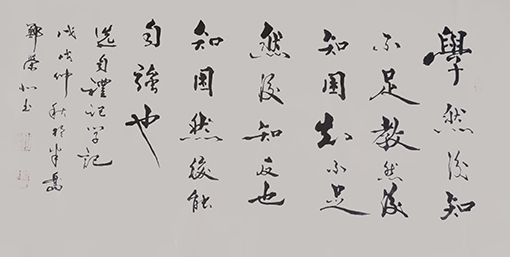 學然後知
不足教然後
知困知不足
然後知反也
知困然後能
自強也
選自禮記學記
戊戌仲秋於
鄭榮 書